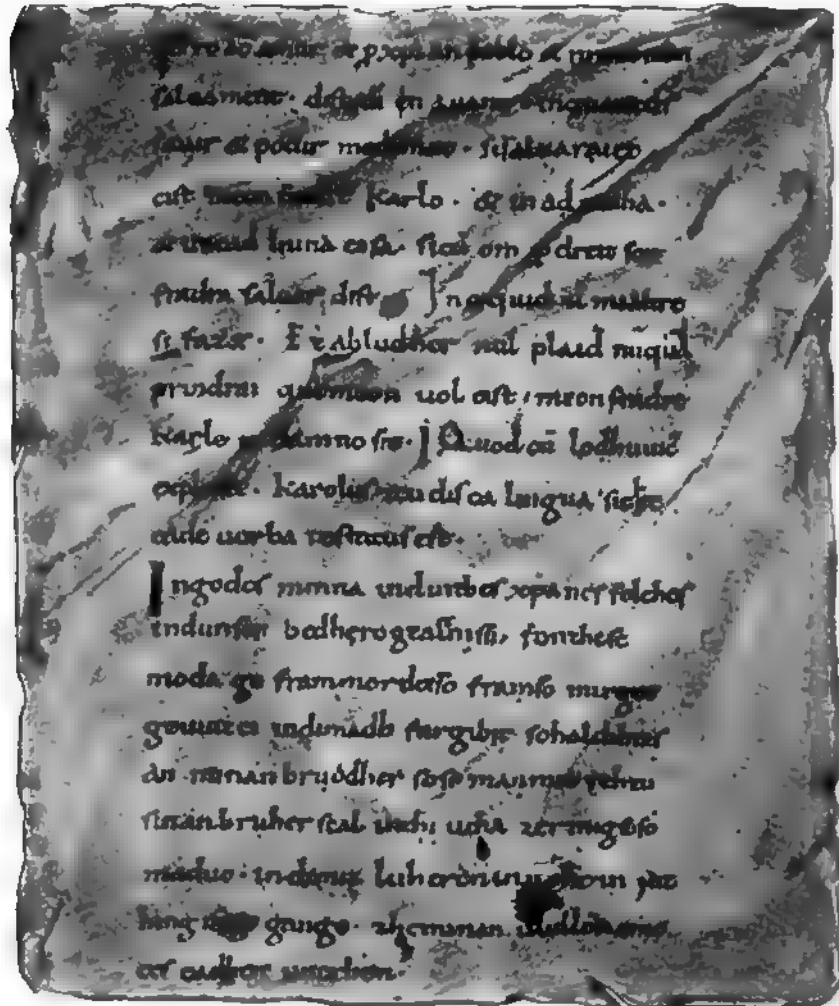 amur & pxpian poblo &
saluament . dist di en auant . inquantds
sauir & podir . sisaluaraieo
cist meon fradre Karlo . & in adiudha .
huna cosa . sicu om p dreit son
fradra saluar dist . In o quid il mialtre
si fazet . Et abludher nul plaid nuquã
prindrai qui meon uol cist . meon fradre
Karlo in damno sit . Quod cũ lodhuuic
Karolus teudisca lingua sic hec
eade uerba testatus est .
Ingodes minna indinthes xpanes folches
indunser bedhero gealtnissi . fonthese
moda ge frammordesso framso mirgot
geuuizci indimadh furgibit sohaldihtes
an minan bruodher soso manmit rehtu
sinan bruher scal inthi utha zermigsoso
maduo . indimit luheren innohein iut
hing gango . zheminan uuillon imo
uuerhen .